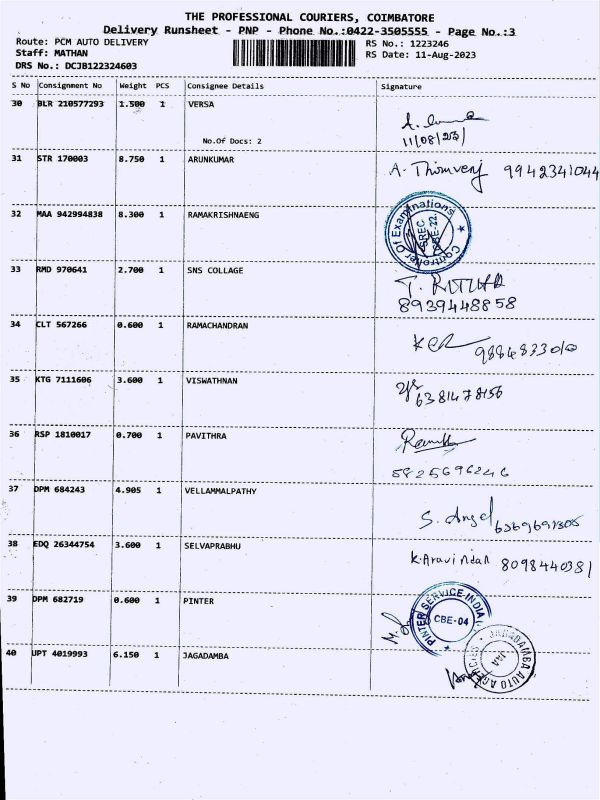 THE PROFESSIONAL COURIERS, COIMBATORE
Delivery Runsheet - PNP - Phone No.:0422-3505555 - Page No.:3
Route: PCM AUTO DELIVERY RS No.: 1223246
Staff: MATHAN RS Date: 11-Aug-2023
DRS No.: DCJB122324603
S No Consignment No Weight PCS Consignee Details Signature
30 BLR 210577293 1.500 1 VERSA
No.Of Docs: 2 11/08/23
31 STR 170003 8.750 1 ARUNKUMAR A. 9942341044
32 MAA 942994838 8.300 1 RAMAKRISHNAENG Controller Of Examinations SREC CBE-22
33 RMD 970641 2.700 1 SNS COLLAGE T.
8939448858
34 CLT 567266 0.600 1 RAMACHANDRAN
35 KTG 7111606 3.600 1 VISWATHNAN 6381478156
36 RSP 1810017 0.700 1 PAVITHRA
5825696246
37 DPM 684243 4.905 1 VELLAMMALPATHY S. Angel
38 EDQ 26344754 3.600 1 SELVAPRABHU K.Aravindan 8098440381
39 DPM 682719 0.600 1 PINTER PINTER SERVICE-INDIA CBE-04
40 UPT 4019993 6.150 1 JAGADAMBA JAGADAMBA AUTO AGENCIES JAA